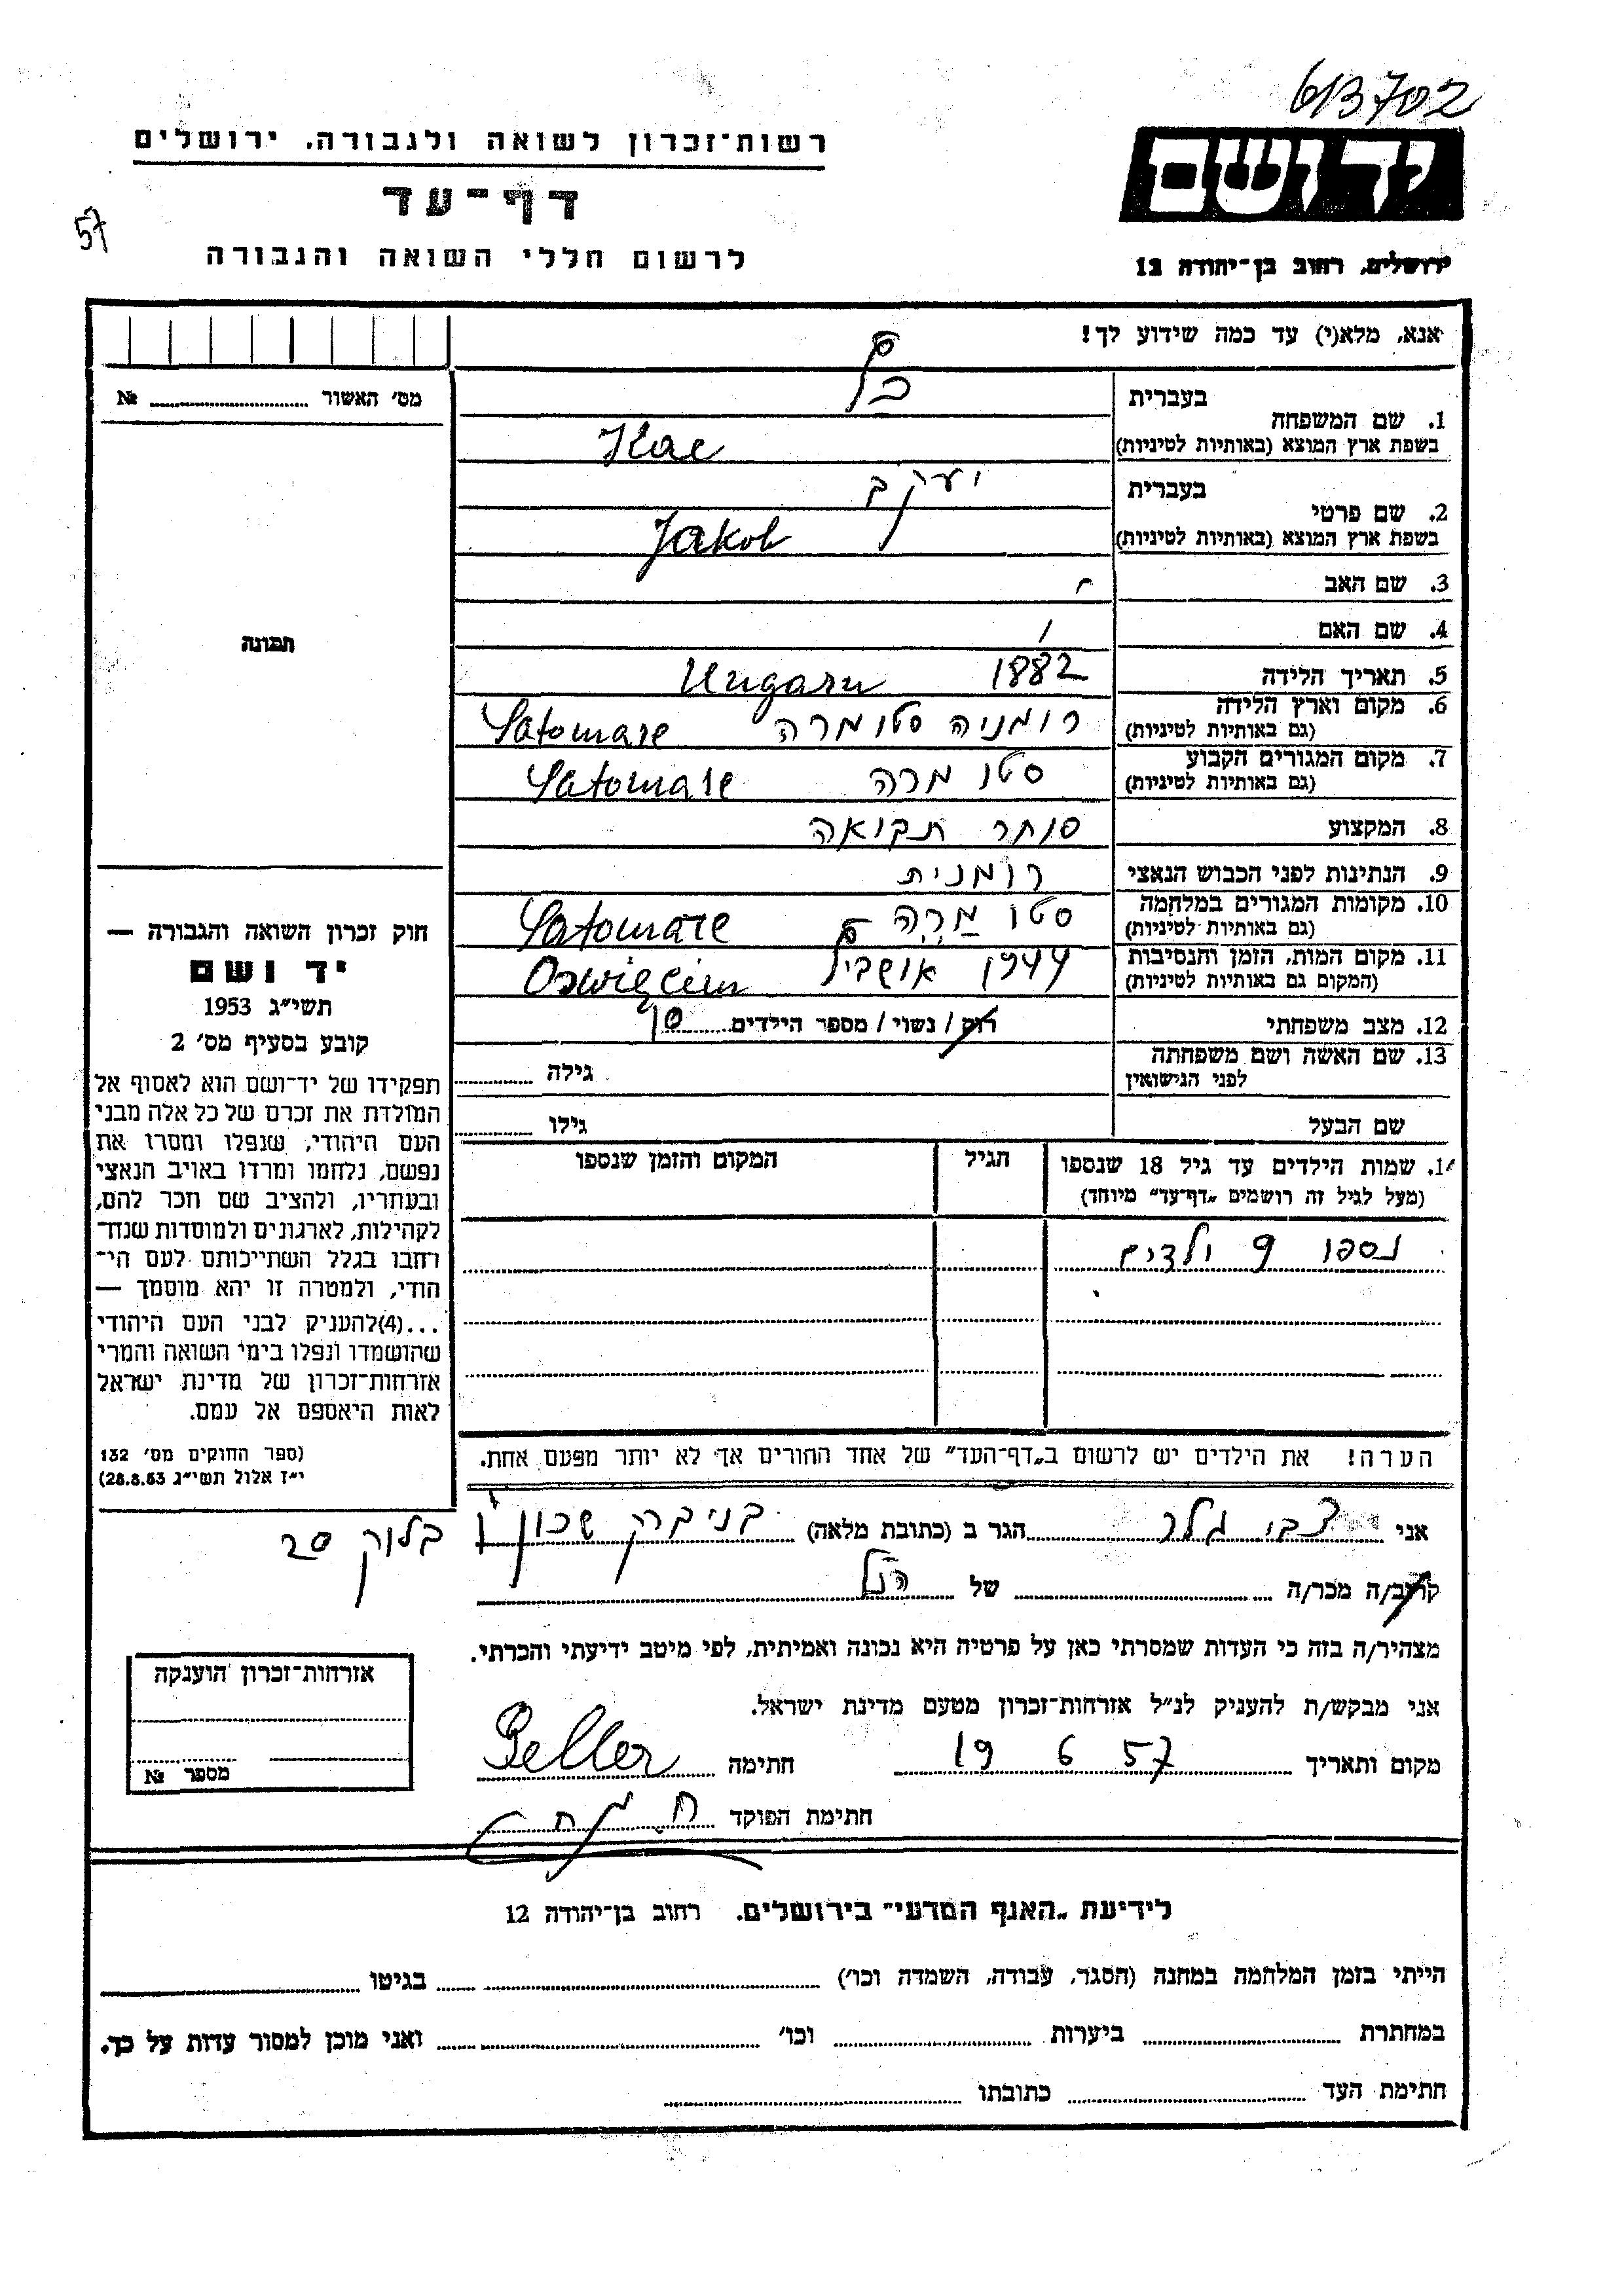 613702
רשות־זכרון לשואה ולגבורה, ירושלים
ידושם
דף־עד
57
לרשום חללי השואה והגבורה
ירושלים, רחוב בן־יהודה 12
אנא, מלא(י) עד כמה שידוע לך!
מס׳ האשור № 
בעברית
1. שם המשפחה כץ
בשפת ארץ המוצא (באותיות לטיניות) Kac
בעברית יעקב
2. שם פרטי
בשפת ארץ המוצא (באותיות לטיניות) Jakob
3. שם האב
4. שם האם
תמונה
5. תאריך הלידה 1882 Ungarn
6. מקום וארץ הלידה רומניה סטומרה Satomare
(גם באותיות לטיניות)
7. מקום המגורים הקבוע סטו מרה Satomare
(גם באותיות לטיניות)
8. המקצוע סוחר תבואה
9. הנתינות לפני הכבוש הנאצי רומנית
10. מקומות המגורים במלחמה סטו מרה Satomare
(גם באותיות לטיניות)
11. מקום המות, הזמן והנסיבות 1944 אושביץ Oswięcim
(המקום גם באותיות לטיניות)
12. מצב משפחתי רוק / נשוי / מספר הילדים 10
13. שם האשה ושם משפחתה
לפני הנישואין גילה
שם הבעל גילו
14. שמות הילדים עד גיל 18 שנספו הגיל המקום והזמן שנספו
(מעל לגיל זה רושמים „דף־עד״ מיוחד)
נספו 9 ילדים
הערה! את הילדים יש לרשום ב„דף־העד״ של אחד ההורים אך לא יותר מפעם אחת.
חוק זכרון השואה והגבורה —
יד ושם
תשי״ג 1953
קובע בסעיף מס׳ 2
תפקידו של יד־ושם הוא לאסוף אל
המולדת את זכרם של כל אלה מבני
העם היהודי, שנפלו ומסרו את
נפשם, נלחמו ומרדו באויב הנאצי
ובעוזריו, ולהציב שם וזכר להם,
לקהילות, לארגונים ולמוסדות שנח־
רבו בגלל השתייכותם לעם הי־
הודי, ולמטרה זו יהא מוסמך —
...(4) להעניק לבני העם היהודי
שהושמדו ונפלו בימי השואה והמרי
אזרחות־זכרון של מדינת ישראל
לאות היאספם אל עמם.
(ספר החוקים מס׳ 132
י״ז אלול תשי״ג 28.8.53)
אני צבי גלר הגר ב (כתובת מלאה) בני ברק שכון ו בלוק 20
קרוב/ה מכר/ה של הנ״ל
מצהיר/ה בזה כי העדות שמסרתי כאן על פרטיה היא נכונה ואמיתית, לפי מיטב ידיעתי והכרתי.
אני מבקש/ת להעניק לנ״ל אזרחות־זכרון מטעם מדינת ישראל.
מקום ותאריך 19 6 57 חתימה Geller
חתימת הפוקד
אזרחות־זכרון הוענקה
מספר №
לידיעת „האגף המדעי״ בירושלים. רחוב בן־יהודה 12
הייתי בזמן המלחמה במחנה (הסגר, עבודה, השמדה וכו׳) בגיטו
במחתרת ביערות וכו׳ ואני מוכן למסור עדות על כך.
חתימת העד כתובתו